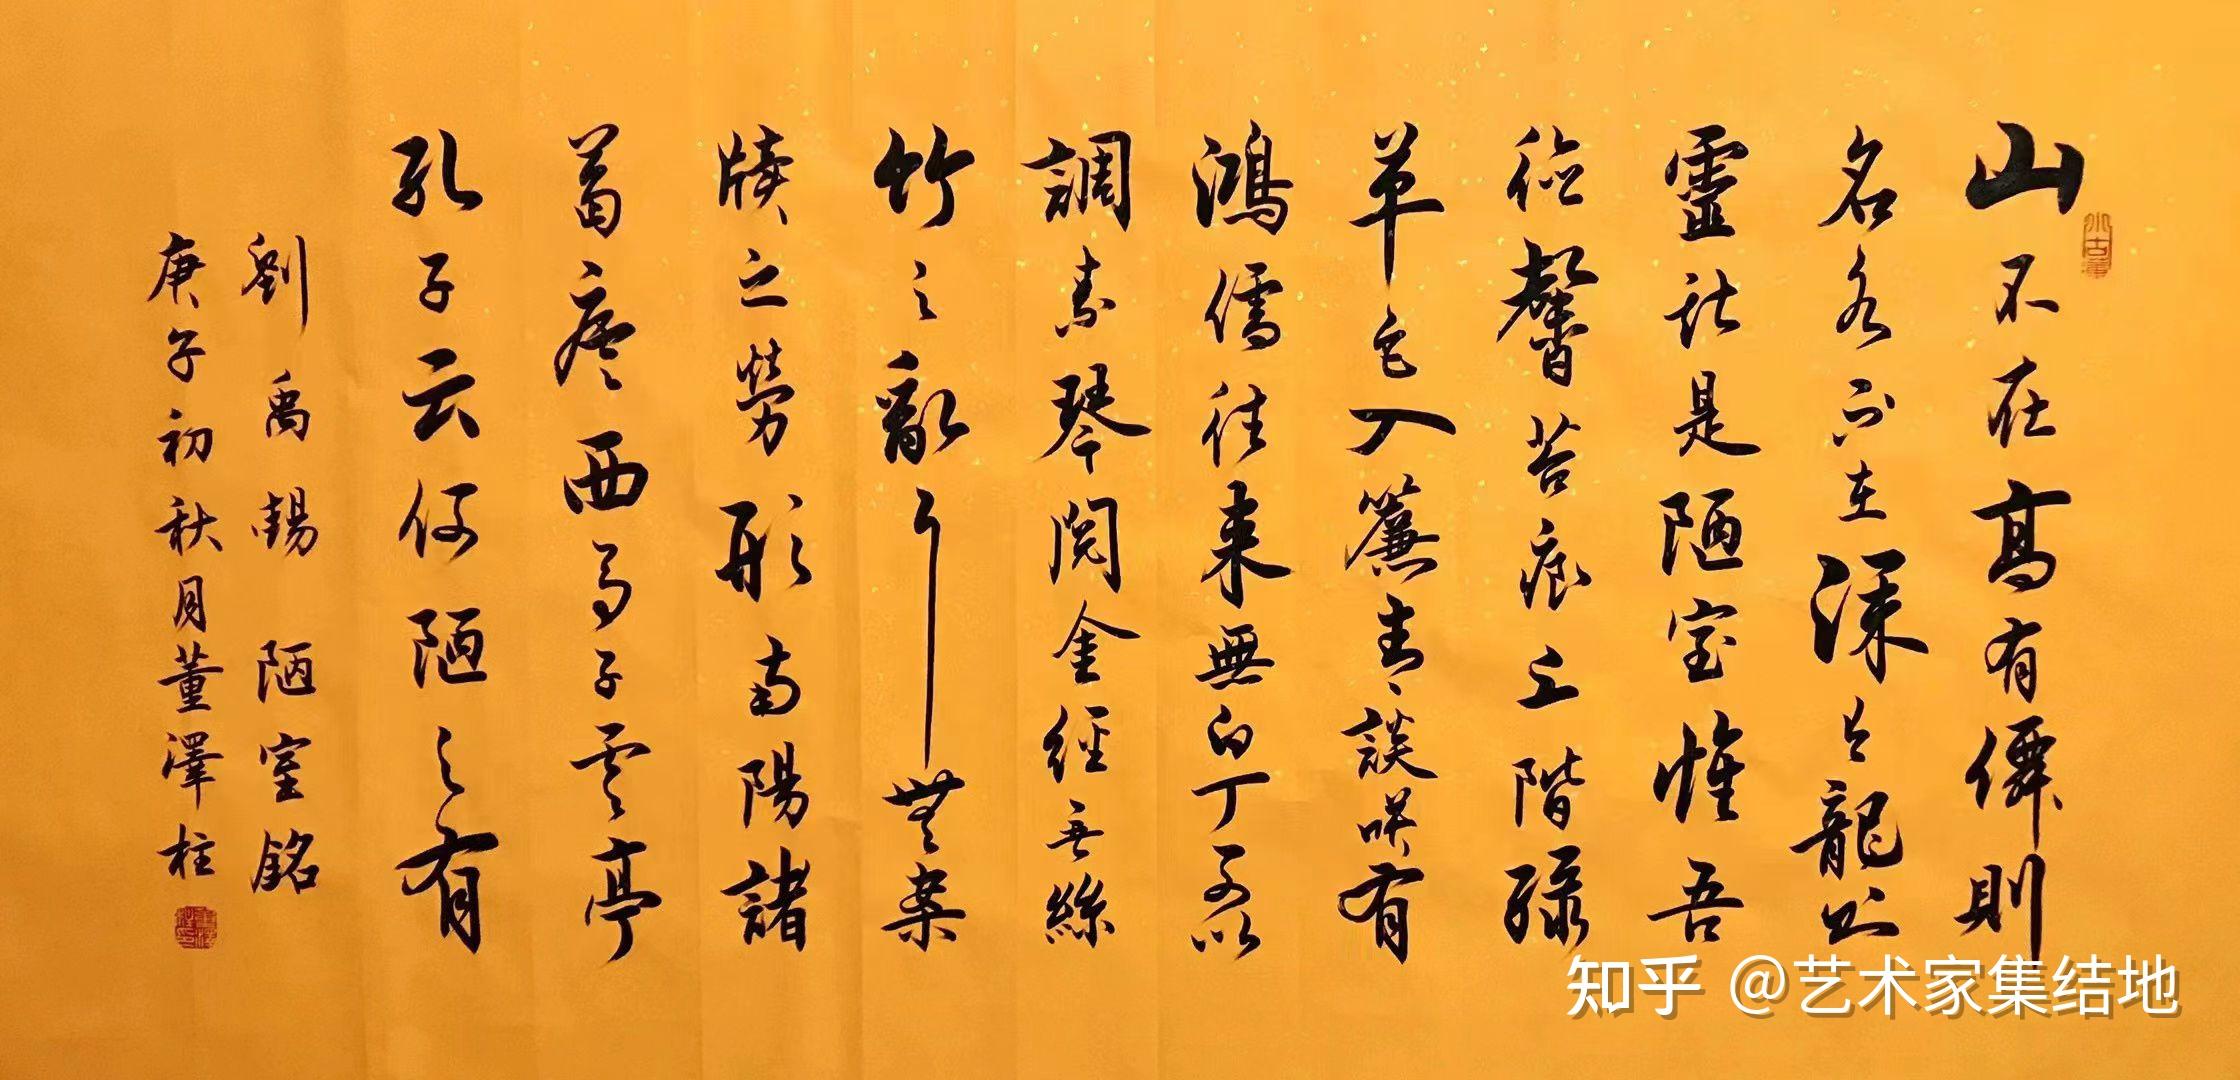 山不在高有僊則
名水不在深有龍則
靈斯是陋室惟吾
德馨苔痕上階綠
草色入簾青談咲有
鴻儒往來無白丁可以
調素琴閱金經無絲
竹之亂耳無案
牘之勞形南陽諸
葛廬西蜀子雲亭
孔子云何陋之有
劉禹錫陋室銘
庚子初秋月董澤柱
知乎 @艺术家集结地